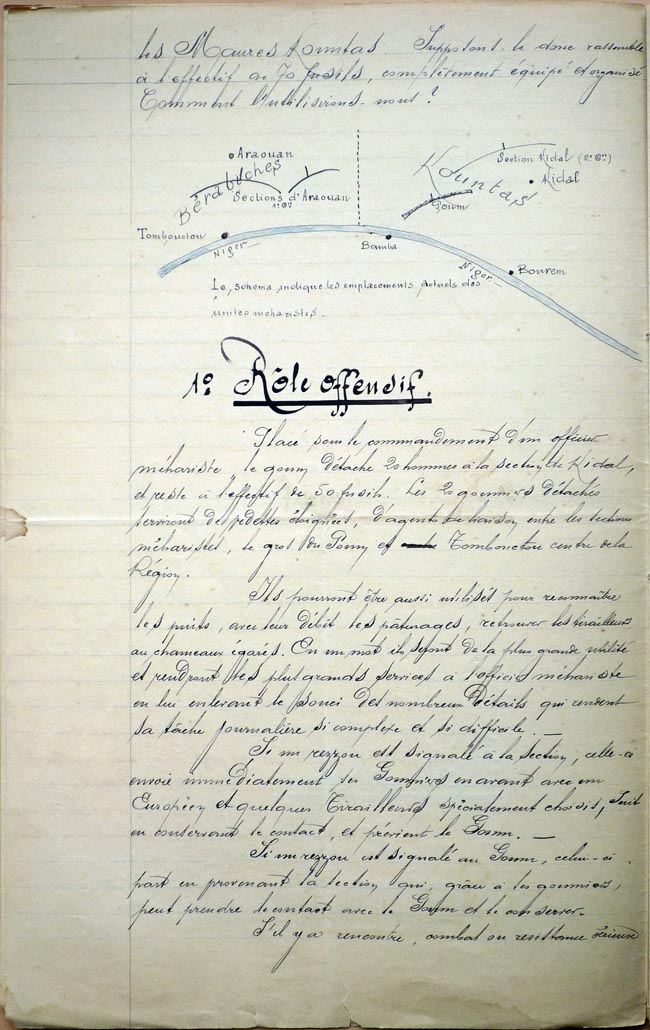 les Maures Kountas. Supposons-le donc rassemblé
à l'effectif de 70 fusils, complètement équipé et organisé
Comment l'utiliserions-nous?
Araouan
Bérabiches
Sections d'Araouan
Kountas
Section Kidal (2e Gr)
Kidal
Goum
Tombouctou
Niger
Bamba
Niger
Bourem
Le schema indique les emplacements actuels des
unites meharistes.
1º Rôle offensif.
Placé sous le commandement d'un officier
méhariste le goum détache 20 hommes à la section de Kidal,
et reste à l'effectif de 50 fusils. Les 20 goumiers détachés
serviront de vedettes éloignées, d'agents de liaison entre les sections
méharistes, le gros du Goum et Tombouctou centre de la
Région.
Ils pourront être aussi utilisés pour reconnaître
les puits, avec leur débit les pâturages, retrouver les tirailleurs
ou chameaux égarés. En un mot ils seront de la plus grande utilité
et rendront les plus grands services à l'officier méhariste
en lui enlevant le souci des nombreux détails qui rendent
sa tâche journalière si complexe et si difficile. —
Si un rezzou est signalé à la section, celle-ci
envoie immédiatement ses Goumiers en avant avec un
Européen et quelques Tirailleurs spécialement choisis, suit
en conservant le contact, et prévient le Goum. —
Si un rezzou est signalé au Goum, celui-ci
part en prévenant la section qui, grâce à les goumiers,
peut prendre le contact avec le Goum et le conserver.
S'il y a rencontre, combat ou resistance sérieuse